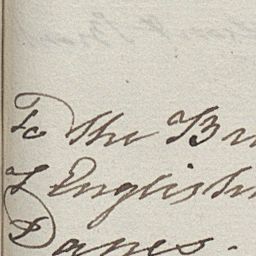 To the Br
& English
Danes.